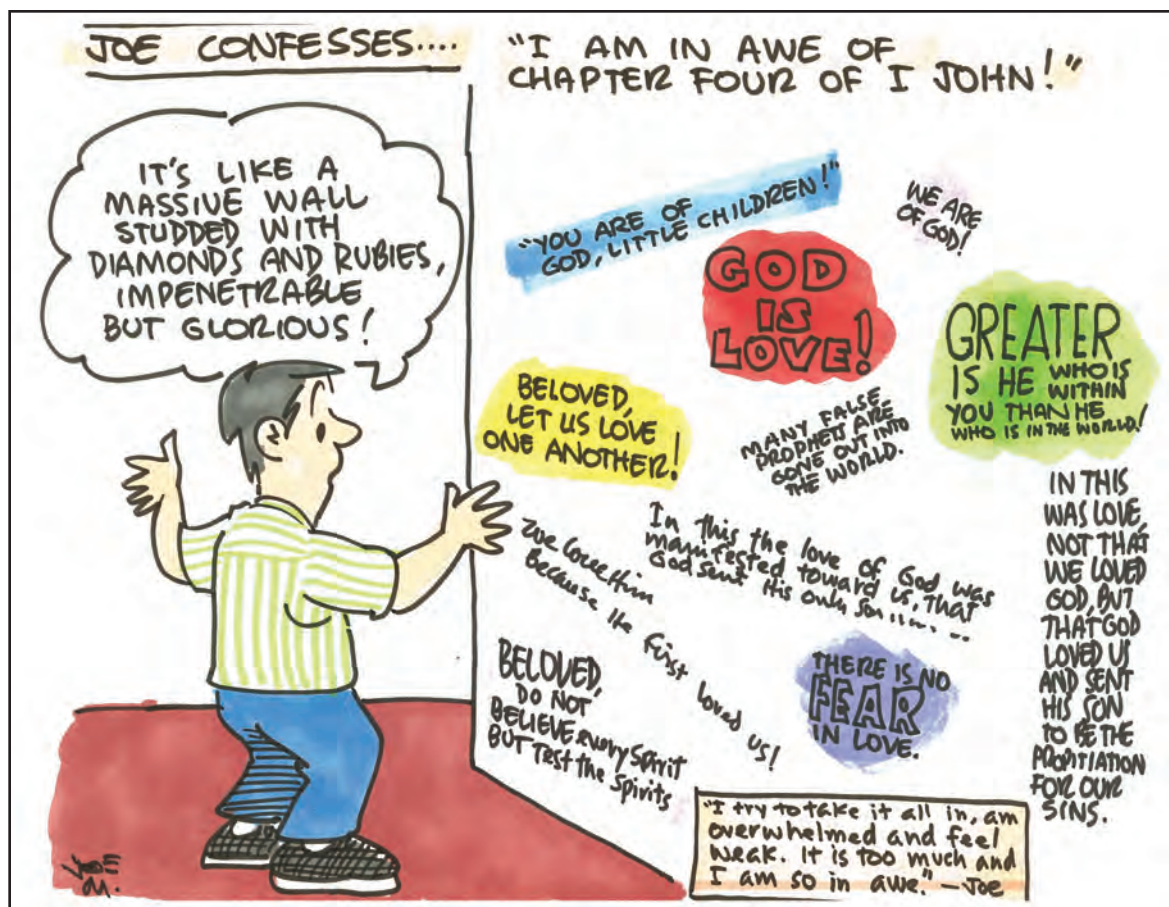 JOE CONFESSES....
"I AM IN AWE OF
CHAPTER FOUR OF I JOHN!"
IT'S LIKE A
MASSIVE WALL
STUDDED WITH
DIAMONDS AND RUBIES,
IMPENETRABLE
BUT GLORIOUS!
"YOU ARE OF
GOD, LITTLE CHILDREN!"
WE ARE
OF GOD!
GOD
IS
LOVE!
GREATER
IS HE WHO IS
WITHIN
YOU THAN HE
WHO IS IN THE WORLD!
BELOVED,
LET US LOVE
ONE ANOTHER!
MANY FALSE
PROPHETS ARE
GONE OUT INTO
THE WORLD.
In this the love of God was
manifested toward us, that
God sent His only son.......
We love Him
because He first loved us!
BELOVED,
DO NOT
BELIEVE every spirit
BUT TEST the spirits
THERE IS NO
FEAR
IN LOVE.
IN THIS
WAS LOVE,
NOT THAT
WE LOVED
GOD, BUT
THAT GOD
LOVED US
AND SENT
HIS SON
TO BE THE
PROPITIATION
FOR OUR
SINS.
"I try to take it all in, am
overwhelmed and feel
weak. It is too much and
I am so in awe." — Joe